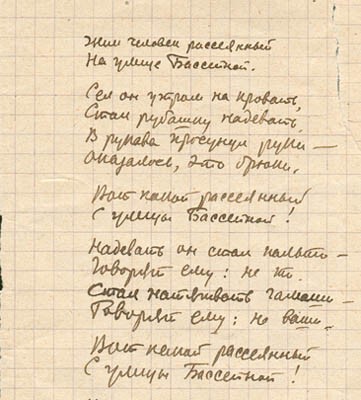 Жил человек рассеянный
На улице Бассейной.
Сел он утром на кровать,
Стал рубашку надевать,
В рукава просунул руки —
Оказалось, это брюки.
Вот какой рассеянный
С улицы Бассейной!
Надевать он стал пальто —
Говорят ему: не то.
Стал натягивать гамаши —
Говорят ему: не ваши.
Вот какой рассеянный
С улицы Бассейной!